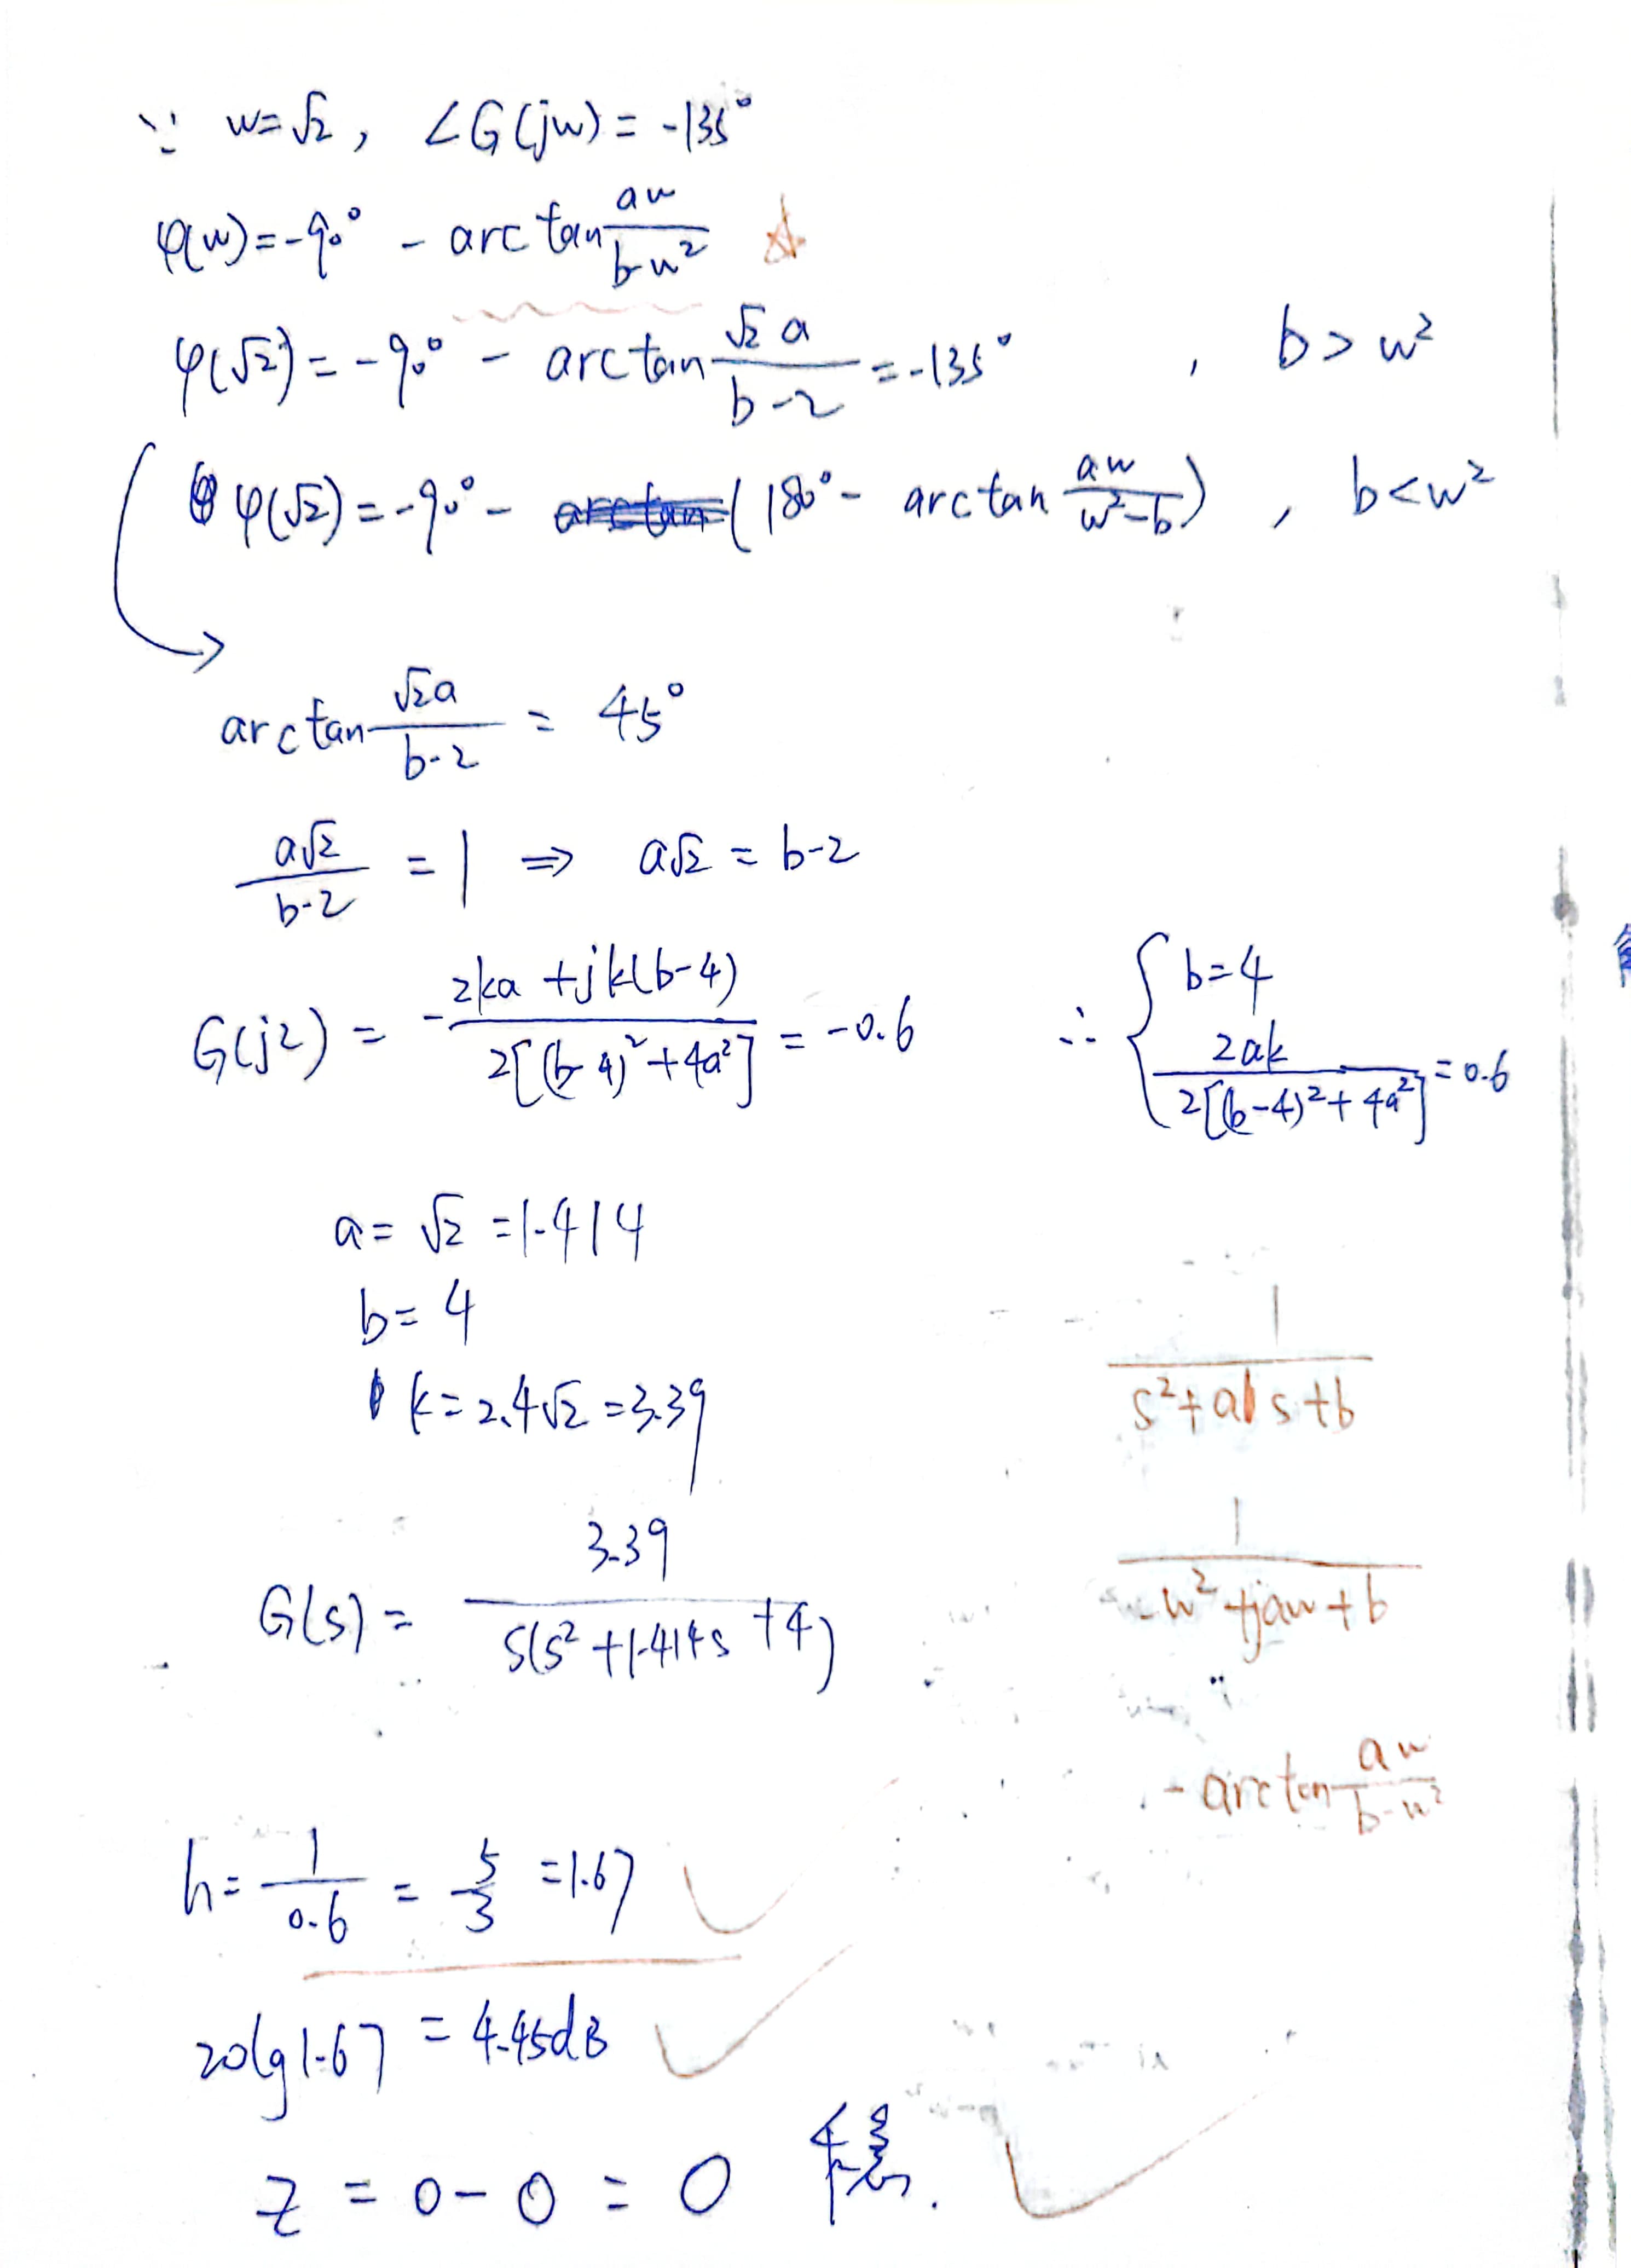 ∵ w=√2, ∠G(jw) = -135°
φ(w)=-90° - arctan aw/(b-w²) ☆
φ(√2) = -90° - arctan √2 a/(b-2) = -135° , b > w²
φ(√2) = -90° - (180° - arctan aw/(w²-b)) , b < w²
arctan √2a/(b-2) = 45°
a√2/(b-2) = 1 ⇒ a√2 = b-2
G(j2) = - (2ka + jk(b-4))/(2[(b-4)²+4a²]) = -0.6 ∴ { b=4
2ak/(2[(b-4)²+4a²]) = 0.6
a = √2 = 1.414
b = 4
k = 2.4√2 = 3.39
1/(s²+as+b)
G(s) = 3.39/(s(s²+1.414s+4))
1/(-w²+jaw+b)
-arctan aw/(b-w²)
h = 1/0.6 = 5/3 = 1.67
20lg1.67 = 4.45dB
Z = 0 - 0 = 0 稳.